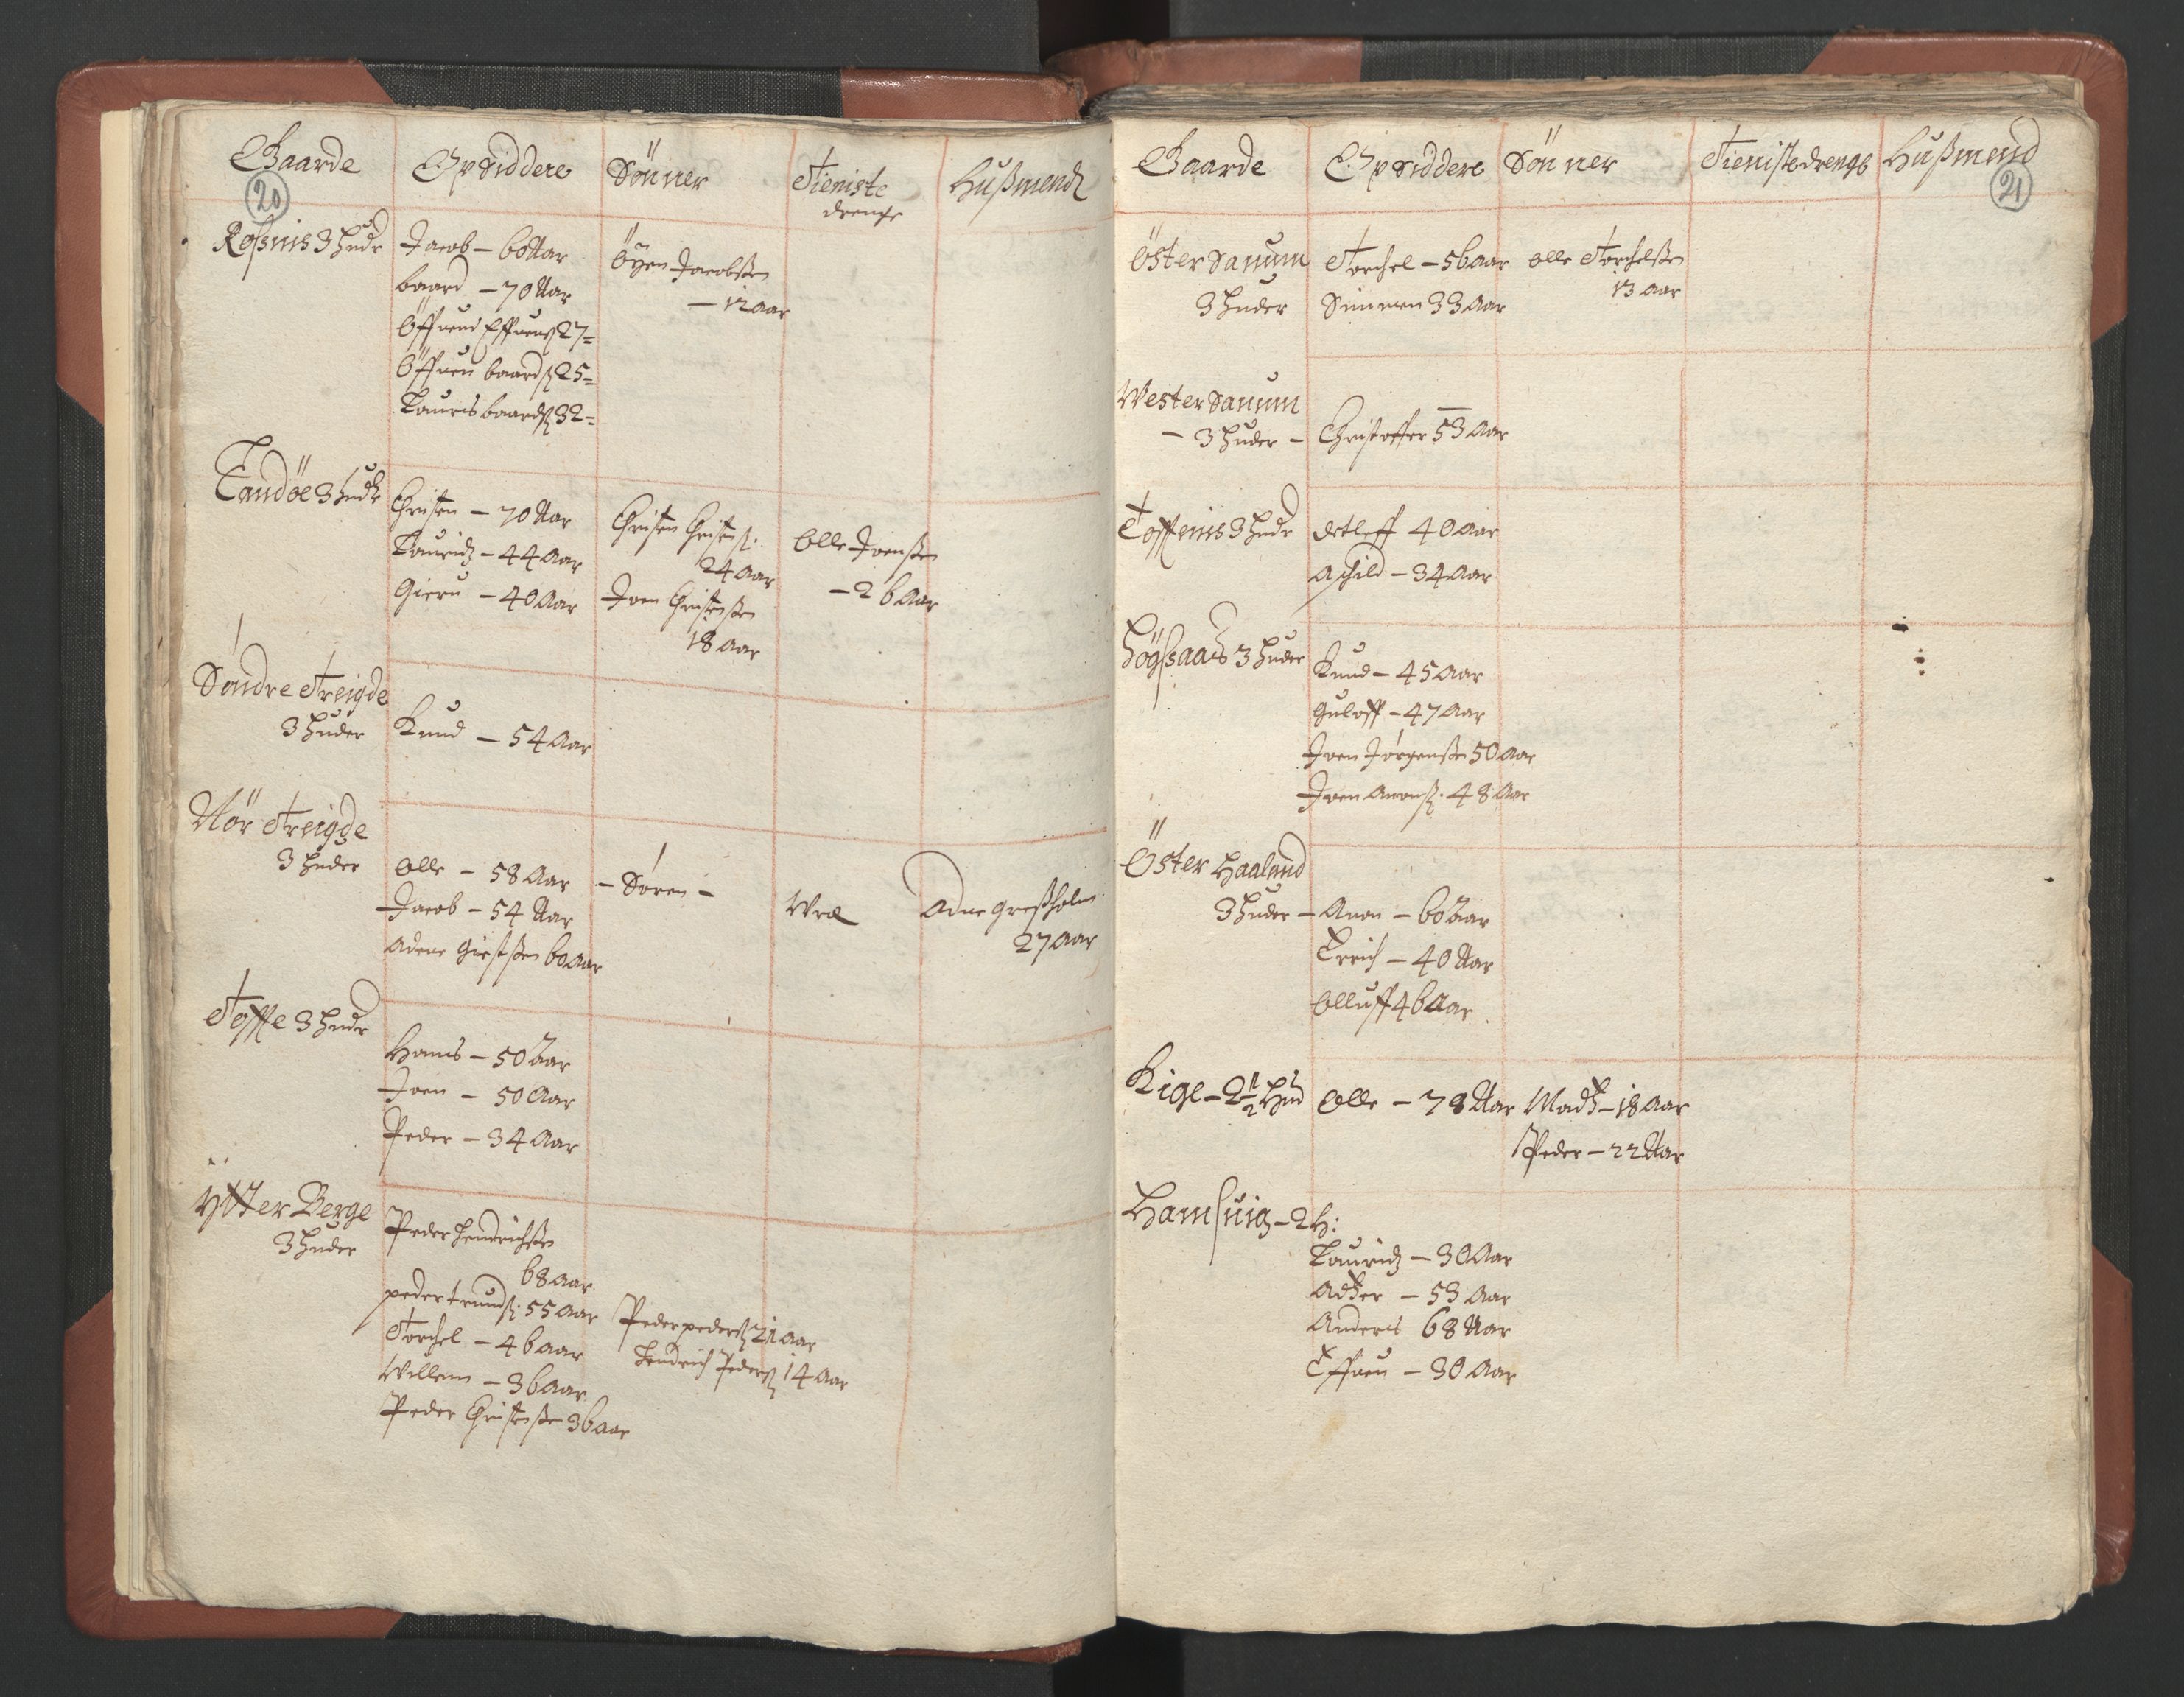 Gaarde Opsiddere Sönner Tieniste drenge Hußmend
20
Roßnis 3 Hudr
Jacob – 60 Aar
baard – 70 Aar
Öffuend Effuens 27 =
Öffuen baards 25 =
Lauris baards 32 =
Öyen Jacobßen
– 12 aar
Landöe 3 hudr
Christen – 70 Aar
Lauridz – 44 Aar
Gieru – 40 Aar
Christen Christens:
24 Aar
Joen Christenßen
18 Aar
Olle Joenßen
– 26 Aar
Söndre Treigde
3 Huder
Knud – 54 Aar
Nör Treigde
3 Huder
Olle – 58 Aar
Jacob – 54 Aar
Adene 60 Aar
– Sören –
Adne
27 Aar
Toffte 3 Hudr
Hans – 50 Aar
Joen – 50 Aar
Peder – 34 Aar
Ytter Berge
3 Huder
Peder Hendrichßen
68 Aar
peder trunds: 55 Aar
Torchel – 46 Aar
Willem – 36 Aar
Peder Christenße 36 Aar
Peder peders 21 Aar
Hendrich Peders 14 Aar
Gaarde Opsiddere Sönner Tienistedrenge Hußmend
21
Öster Sanum
3 Huder
Torchel – 56 aar
Simmen 33 Aar
Olle Torchelßen
13 Aar
Wester Sanum
– 3 Huder –
Christoffer 53 Aar
Toffenis 3 Hudr
Detleff 40 Aar
Aschild – 34 Aar
Högsaas 3 Huder
Knud – 45 Aar
Guloff – 47 Aar
Joen Jörgenßen 50 Aar
Joen Anons: 48 Aar
Öster Haaland
3 Huder –
Anon – 60 Aar
Erich – 40 Aar
Olluff 46 Aar
Kige – 2 1/2 Hud
Olle – 78 Aar
Madz – 18 Aar
Peder – 22 Aar
Hamsuig – 2 H:
Lauridz – 30 Aar
Adzer – 53 Aar
Anders 68 Aar
Effuen – 30 Aar